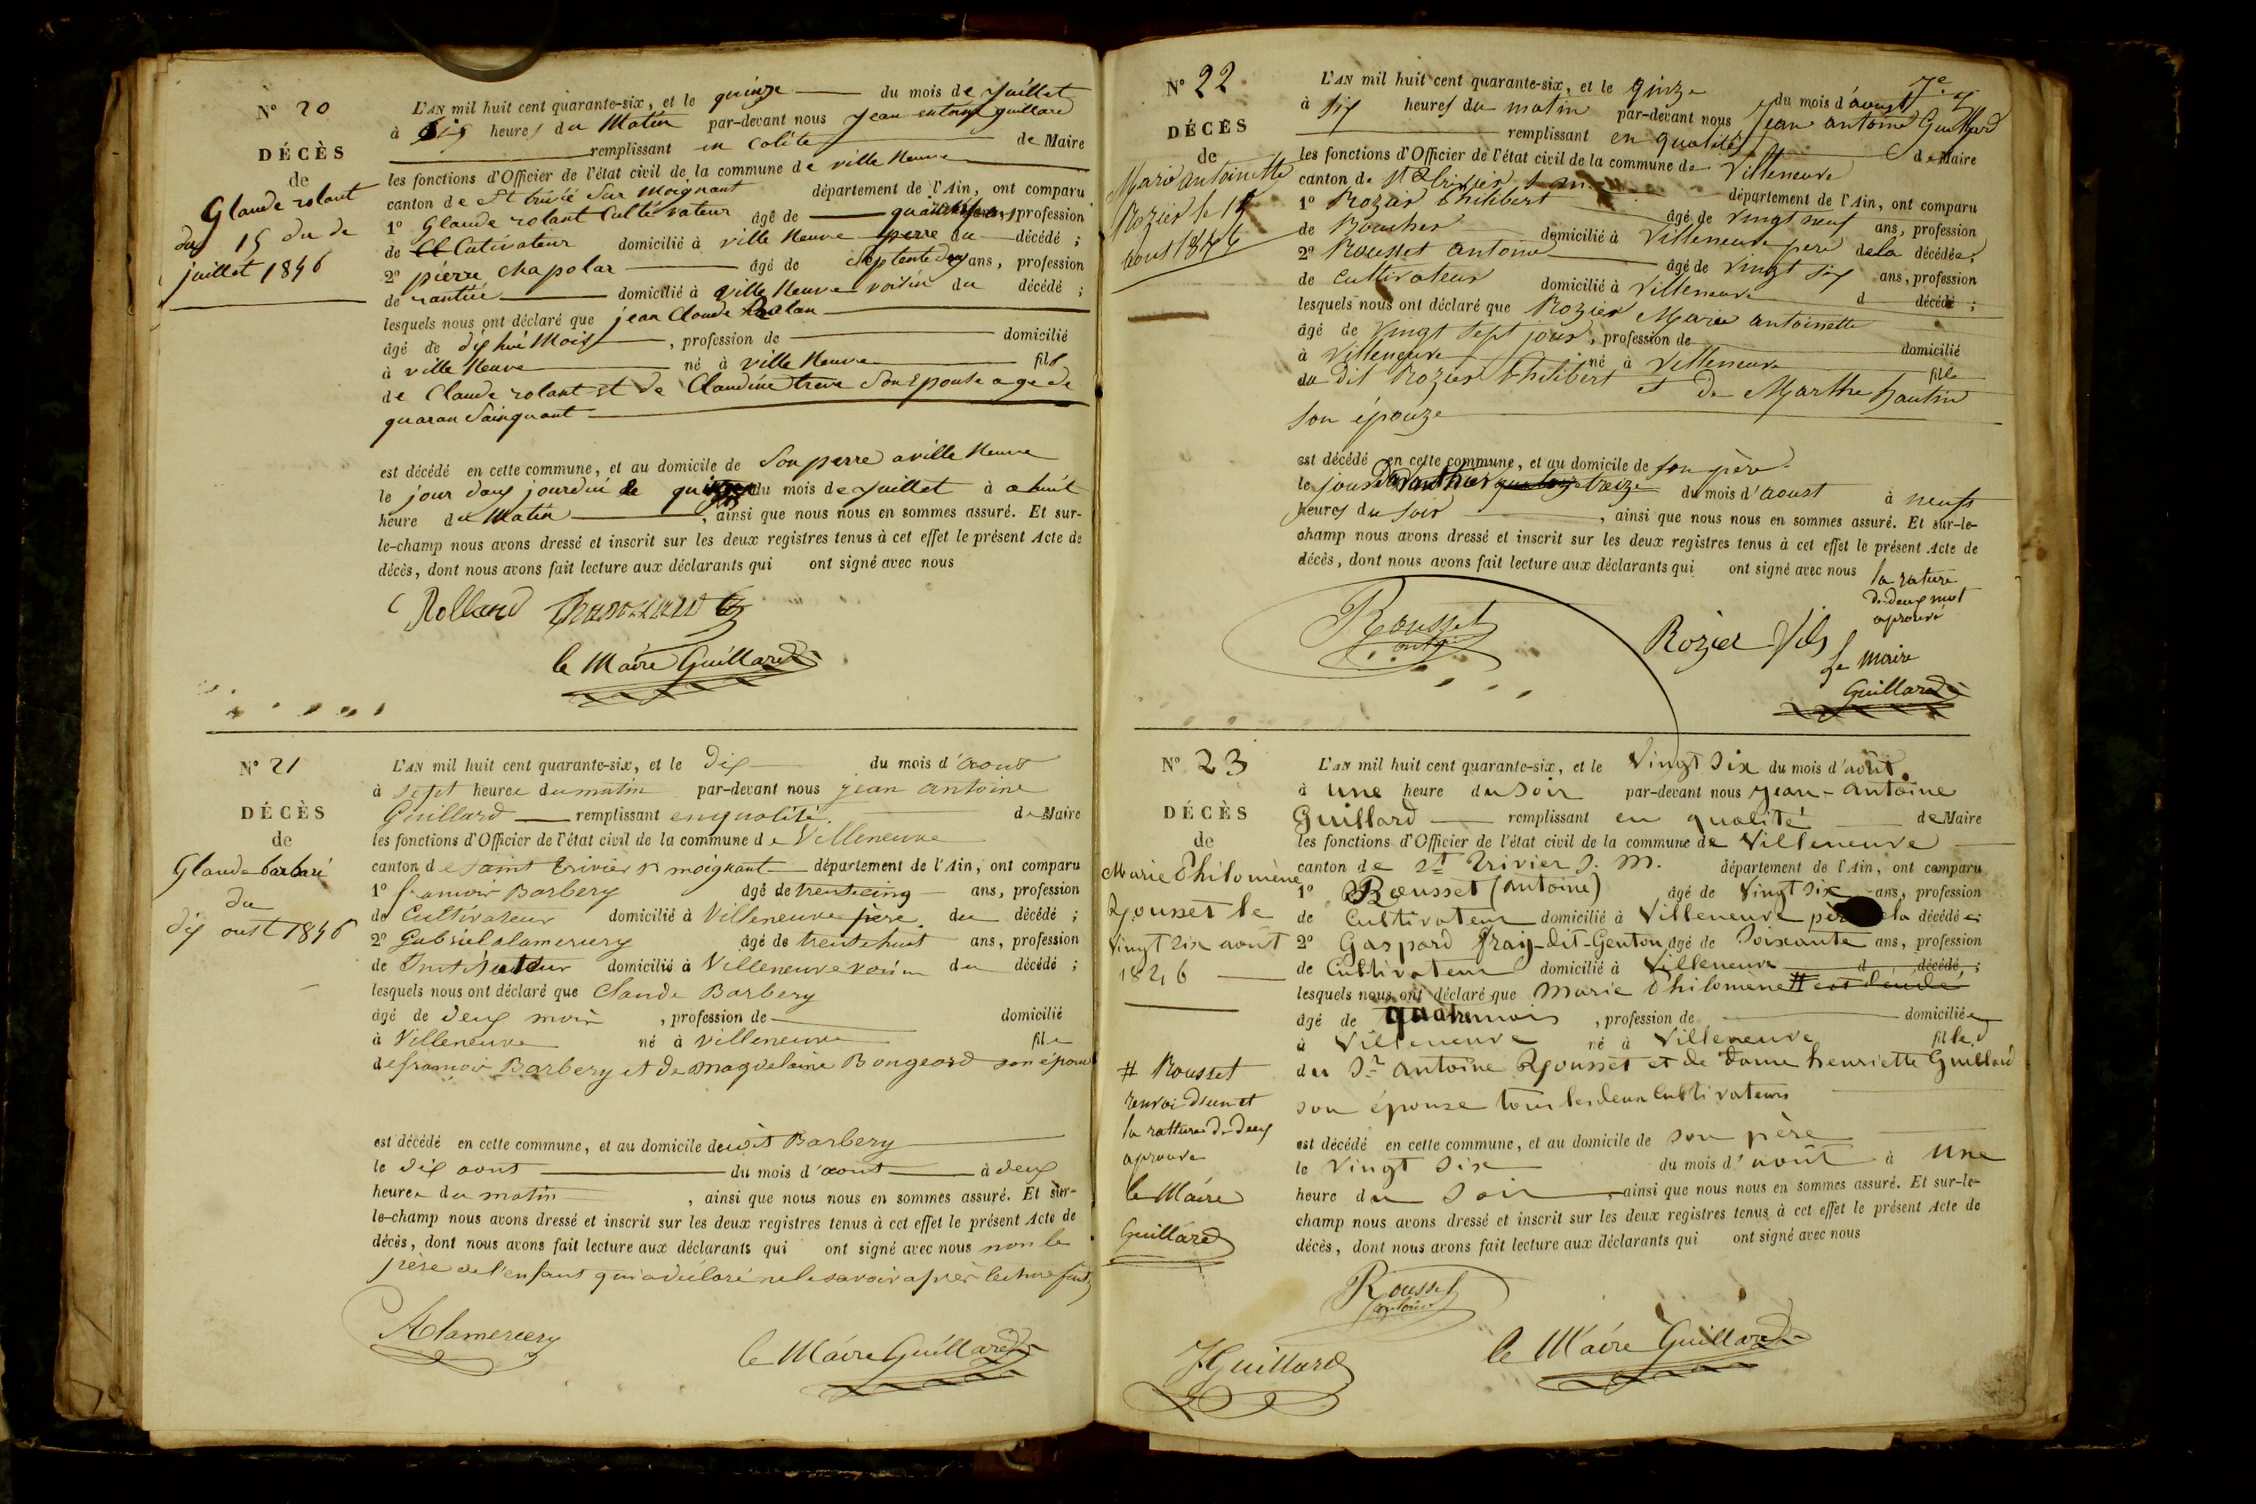 N° 20
DÉCÈS
de
Glaude rolant
du 15 du de
juillet 1846
L'AN mil huit cent quarante-six, et le quinze du mois de Juillet
à six heures du Matin par-devant nous Jean entoine guillard
remplissant en colite de Maire
les fonctions d'Officier de l'état civil de la commune de ville Neuve
canton de St trivié Sur moignant département de l'Ain, ont comparu
1° Glaude rolant Cultivateur âgé de ans, profession
de Cutivateur domicilié à ville Neuve perre du décédé ;
2° pierre Chapolar âgé de ans, profession
de rantiée domicilié à ville Neuve voisin du décédé ;
lesquels nous ont déclaré que jean Claude
âgé de dix hui Mois , profession de domicilié
à ville Neuve né à ville Neuve fils
de Claude rolant et de Claudine treve Son Epouse age de
quaran Sainquant
est décédé en cette commune, et au domicile de Son perre a ville Neuve
le jour douy jourdui le du mois de Juillet à a huit
heure du Matin , ainsi que nous nous en sommes assuré. Et sur-
le-champ nous avons dressé et inscrit sur les deux registres tenus à cet effet le présent Acte de
décès, dont nous avons fait lecture aux déclarants qui ont signé avec nous
Rolland
le Maire Guillard
N° 21
DÉCÈS
de
Glaude barbari
du
dix oust 1846
L'AN mil huit cent quarante-six, et le dix du mois d'aout
à sept heures du matin par-devant nous jean antoine
Guillard remplissant en qualité de Maire
les fonctions d'Officier de l'état civil de la commune de Villeneuve
canton de saint trivier sr moignant département de l'Ain, ont comparu
1° francois Barbery âgé de trente cinq ans, profession
de Cultivateur domicilié à Villeneuve père du décédé ;
2° Gabriel alamercery âgé de trente huit ans, profession
de Instituteur domicilié à Villeneuve voisin du décédé ;
lesquels nous ont déclaré que Claude Barbery
âgé de deux mois , profession de domicilié
à Villeneuve né à villeneuve fils
de francois Barbery et de magdelaine Bongeard son épouse
est décédé en cette commune, et au domicile dudit Barbery
le dix aout du mois d'aout à deux
heures du matin , ainsi que nous nous en sommes assuré. Et sur-
le-champ nous avons dressé et inscrit sur les deux registres tenus à cet effet le présent Acte de
décès, dont nous avons fait lecture aux déclarants qui ont signé avec nous non le
père de l'enfant qui a déclaré ne le savoir après lecture faite
Alamercery
le Maire Guillard
N° 22
DÉCÈS
de
Marie antoinette
Rozier le 15
aout 1846
L'AN mil huit cent quarante-six, et le quinze du mois d'aoust
à six heures du matin par-devant nous Jean antoine Guillard
remplissant en qualité de Maire
les fonctions d'Officier de l'état civil de la commune de Villeneuve
canton de St Trivier département de l'Ain, ont comparu
1° Rozier Philibert âgé de vingt neuf ans, profession
de Boucher domicilié à Villeneuve père de la décédée;
2° Rousset antoine âgé de vingt six ans, profession
de cultivateur domicilié à Villeneuve d décédé ;
lesquels nous ont déclaré que Rozier Marie antoinette
âgé de vingt sept jours, profession de domicilié
à Villeneuve né à Villeneuve fille
du dit Rozier Philibert et de Marthe
son épouze
est décédé en cette commune, et au domicile de son père
le jour d'avanthier quatorze treize du mois d'aoust à neuf
heures du soir , ainsi que nous nous en sommes assuré. Et sur-le-
champ nous avons dressé et inscrit sur les deux registres tenus à cet effet le présent Acte de
décès, dont nous avons fait lecture aux déclarants qui ont signé avec nous la rature
de deux mot
aprouvé
Rousset
Rozier fils
Le maire
Guillard
N° 23
DÉCÈS
de
Marie Philomène
Rousset le
vingt six août
1846
L'AN mil huit cent quarante-six, et le vingt six du mois d'août.
à une heure du soir par-devant nous Jean-antoine
Guillard remplissant en qualité de Maire
les fonctions d'Officier de l'état civil de la commune de Villeneuve
canton de St Trivier s. M. département de l'Ain, ont comparu
1° Rousset (antoine) âgé de vingt six ans, profession
de Cultivateur domicilié à Villeneuve père de la décédée;
2° Gaspard fray-dit-Genton âgé de soixante ans, profession
de Cultivateur domicilié à Villeneuve d décédé ;
lesquels nous ont déclaré que Marie Philomène #
âgé de quatre mois , profession de domiciliée
à Villeneuve né à Villeneuve fille
du Sr antoine Rousset et de Dame henriette Guillard
son épouse tous les deux Cultivateurs
est décédé en cette commune, et au domicile de son père
le vingt six du mois d'août à une
heure du soir , ainsi que nous nous en sommes assuré. Et sur-le-
champ nous avons dressé et inscrit sur les deux registres tenus à cet effet le présent Acte de
décès, dont nous avons fait lecture aux déclarants qui ont signé avec nous
# Rousset
renvoi d'un et
la rature de deux
aprouve
le Maire
Guillard
Rousset
antoine
JGuillard
le Maire Guillard